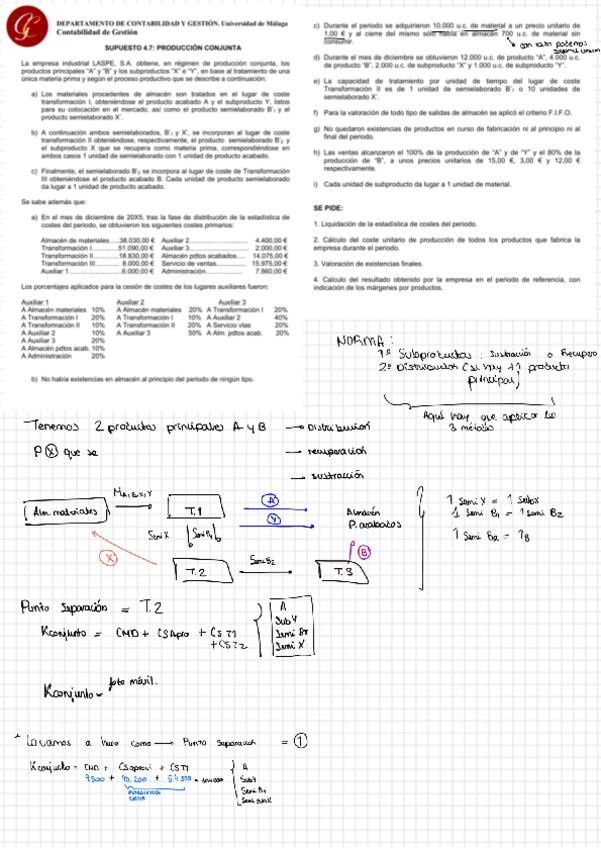 DEPARTAMENTO DE CONTABILIDAD Y GESTIÓN. Universidad de Málaga
Contabilidad de Gestión
SUPUESTO 4.7: PRODUCCIÓN CONJUNTA
La empresa industrial LASPE, S.A. obtiene, en régimen de producción conjunta, los
productos principales "A" y "B" y los subproductos "X" e "Y", en base al tratamiento de una
única materia prima y según el proceso productivo que se describe a continuación:
a) Los materiales procedentes de almacén son tratados en el lugar de coste
transformación I, obteniéndose el producto acabado A y el subproducto Y, listos
para su colocación en el mercado, así como el producto semielaborado B'₁ y el
producto semielaborado X'.
b) A continuación ambos semielaborados, B'₁ y X', se incorporan al lugar de coste
transformación II obteniéndose, respectivamente, el producto semielaborado B'₂ y
el subproducto X que se recupera como materia prima, correspondiéndose en
ambos casos 1 unidad de semielaborado con 1 unidad de producto acabado.
c) Finalmente, el semielaborado B'₂ se incorpora al lugar de coste de Transformación
III obteniéndose el producto acabado B. Cada unidad de producto semielaborado
da lugar a 1 unidad de producto acabado.
Se sabe además que:
a) En el mes de diciembre de 20X5, tras la fase de distribución de la estadística de
costes del periodo, se obtuvieron los siguientes costes primarios:
Almacén de materiales.....38.030,00 € Auxiliar 2............................ 4.400,00 €
Transformación I..............51.090,00 € Auxiliar 3............................ 2.000,00 €
Transformación II.............18.830,00 € Almacén pdtos acabados.... 14.075,00 €
Transformación III............ 8.000,00 € Servicio de ventas.............. 15.975,00 €
Auxiliar 1...........................6.000,00 € Administración.................... 7.860,00 €
Los porcentajes aplicados para la cesión de costes de los lugares auxiliares fueron:
Auxiliar 1 Auxiliar 2 Auxiliar 3
A Almacén materiales 10% A Almacén materiales 20% A Transformación I 20%
A Transformación I 20% A Transformación I 10% A Auxiliar 2 40%
A Transformación II 10% A Transformación II 20% A Servicio vtas 20%
A Auxiliar 2 10% A Auxiliar 3 50% A Alm. pdtos acab. 20%
A Auxiliar 3 20%
A Almacén pdtos acab. 10%
A Administración 20%
b) No había existencias en almacén al principio del periodo de ningún tipo.
c) Durante el periodo se adquirieron 10.000 u.c. de material a un precio unitario de
1,00 € y al cierre del mismo solo había en almacén 700 u.c. de material sin
consumir.
con esto podemos
d) Durante el mes de diciembre se obtuvieron 12.000 u.c. de producto "A", 4.000 u.c.
de producto "B", 2.000 u.c. de subproducto "X" y 1.000 u.c. de subproducto "Y".
e) La capacidad de tratamiento por unidad de tiempo del lugar de coste
Transformación II es de 1 unidad de semielaborado B'₁ o 10 unidades de
semielaborado X'.
f) Para la valoración de todo tipo de salidas de almacén se aplicó el criterio F.I.F.O.
g) No quedaron existencias de productos en curso de fabricación ni al principio ni al
final del periodo.
h) Las ventas alcanzaron el 100% de la producción de "A" y de "Y" y el 80% de la
producción de "B", a unos precios unitarios de 15,00 €, 3,00 € y 12,00 €
respectivamente.
i) Cada unidad de subproducto da lugar a 1 unidad de material.
SE PIDE:
1. Liquidación de la estadística de costes del periodo.
2. Cálculo del coste unitario de producción de todos los productos que fabrica la
empresa durante el periodo.
3. Valoración de existencias finales.
4. Calculo del resultado obtenido por la empresa en el periodo de referencia, con
indicación de los márgenes por productos.
NORMA:
1º Subproductos: sustracción o Recupero
2º Distribución (si hay +1 producto
principal)
Aquí hay que aplicar los
3 métodos
Tenemos 2 productos principales A y B → Distribución
P (X) que se → recuperación
→ sustracción
Alm. materiales
T.1
A
Y
Almacén
P. acabados
Semi X
Semi B₁
X
T.2
Semi B2
T.3
B
1 Semi X = 1 Subx
1 Semi B₁ = 1 Semi B2
1 Semi B2 = 1B
Punto Separación = T.2
Kconjunto = CMD + CSApro + CsT1
+ CsT2
A
Sub Y
Semi B1
Semi X
Kconjunto - foto móvil.
* Lo vamos a hacer como → Punto Separación = ①
Kconjunto - CMD + CSaprovi + CST1
9300 + 40.200 +
A
Sub Y
Semi B₁